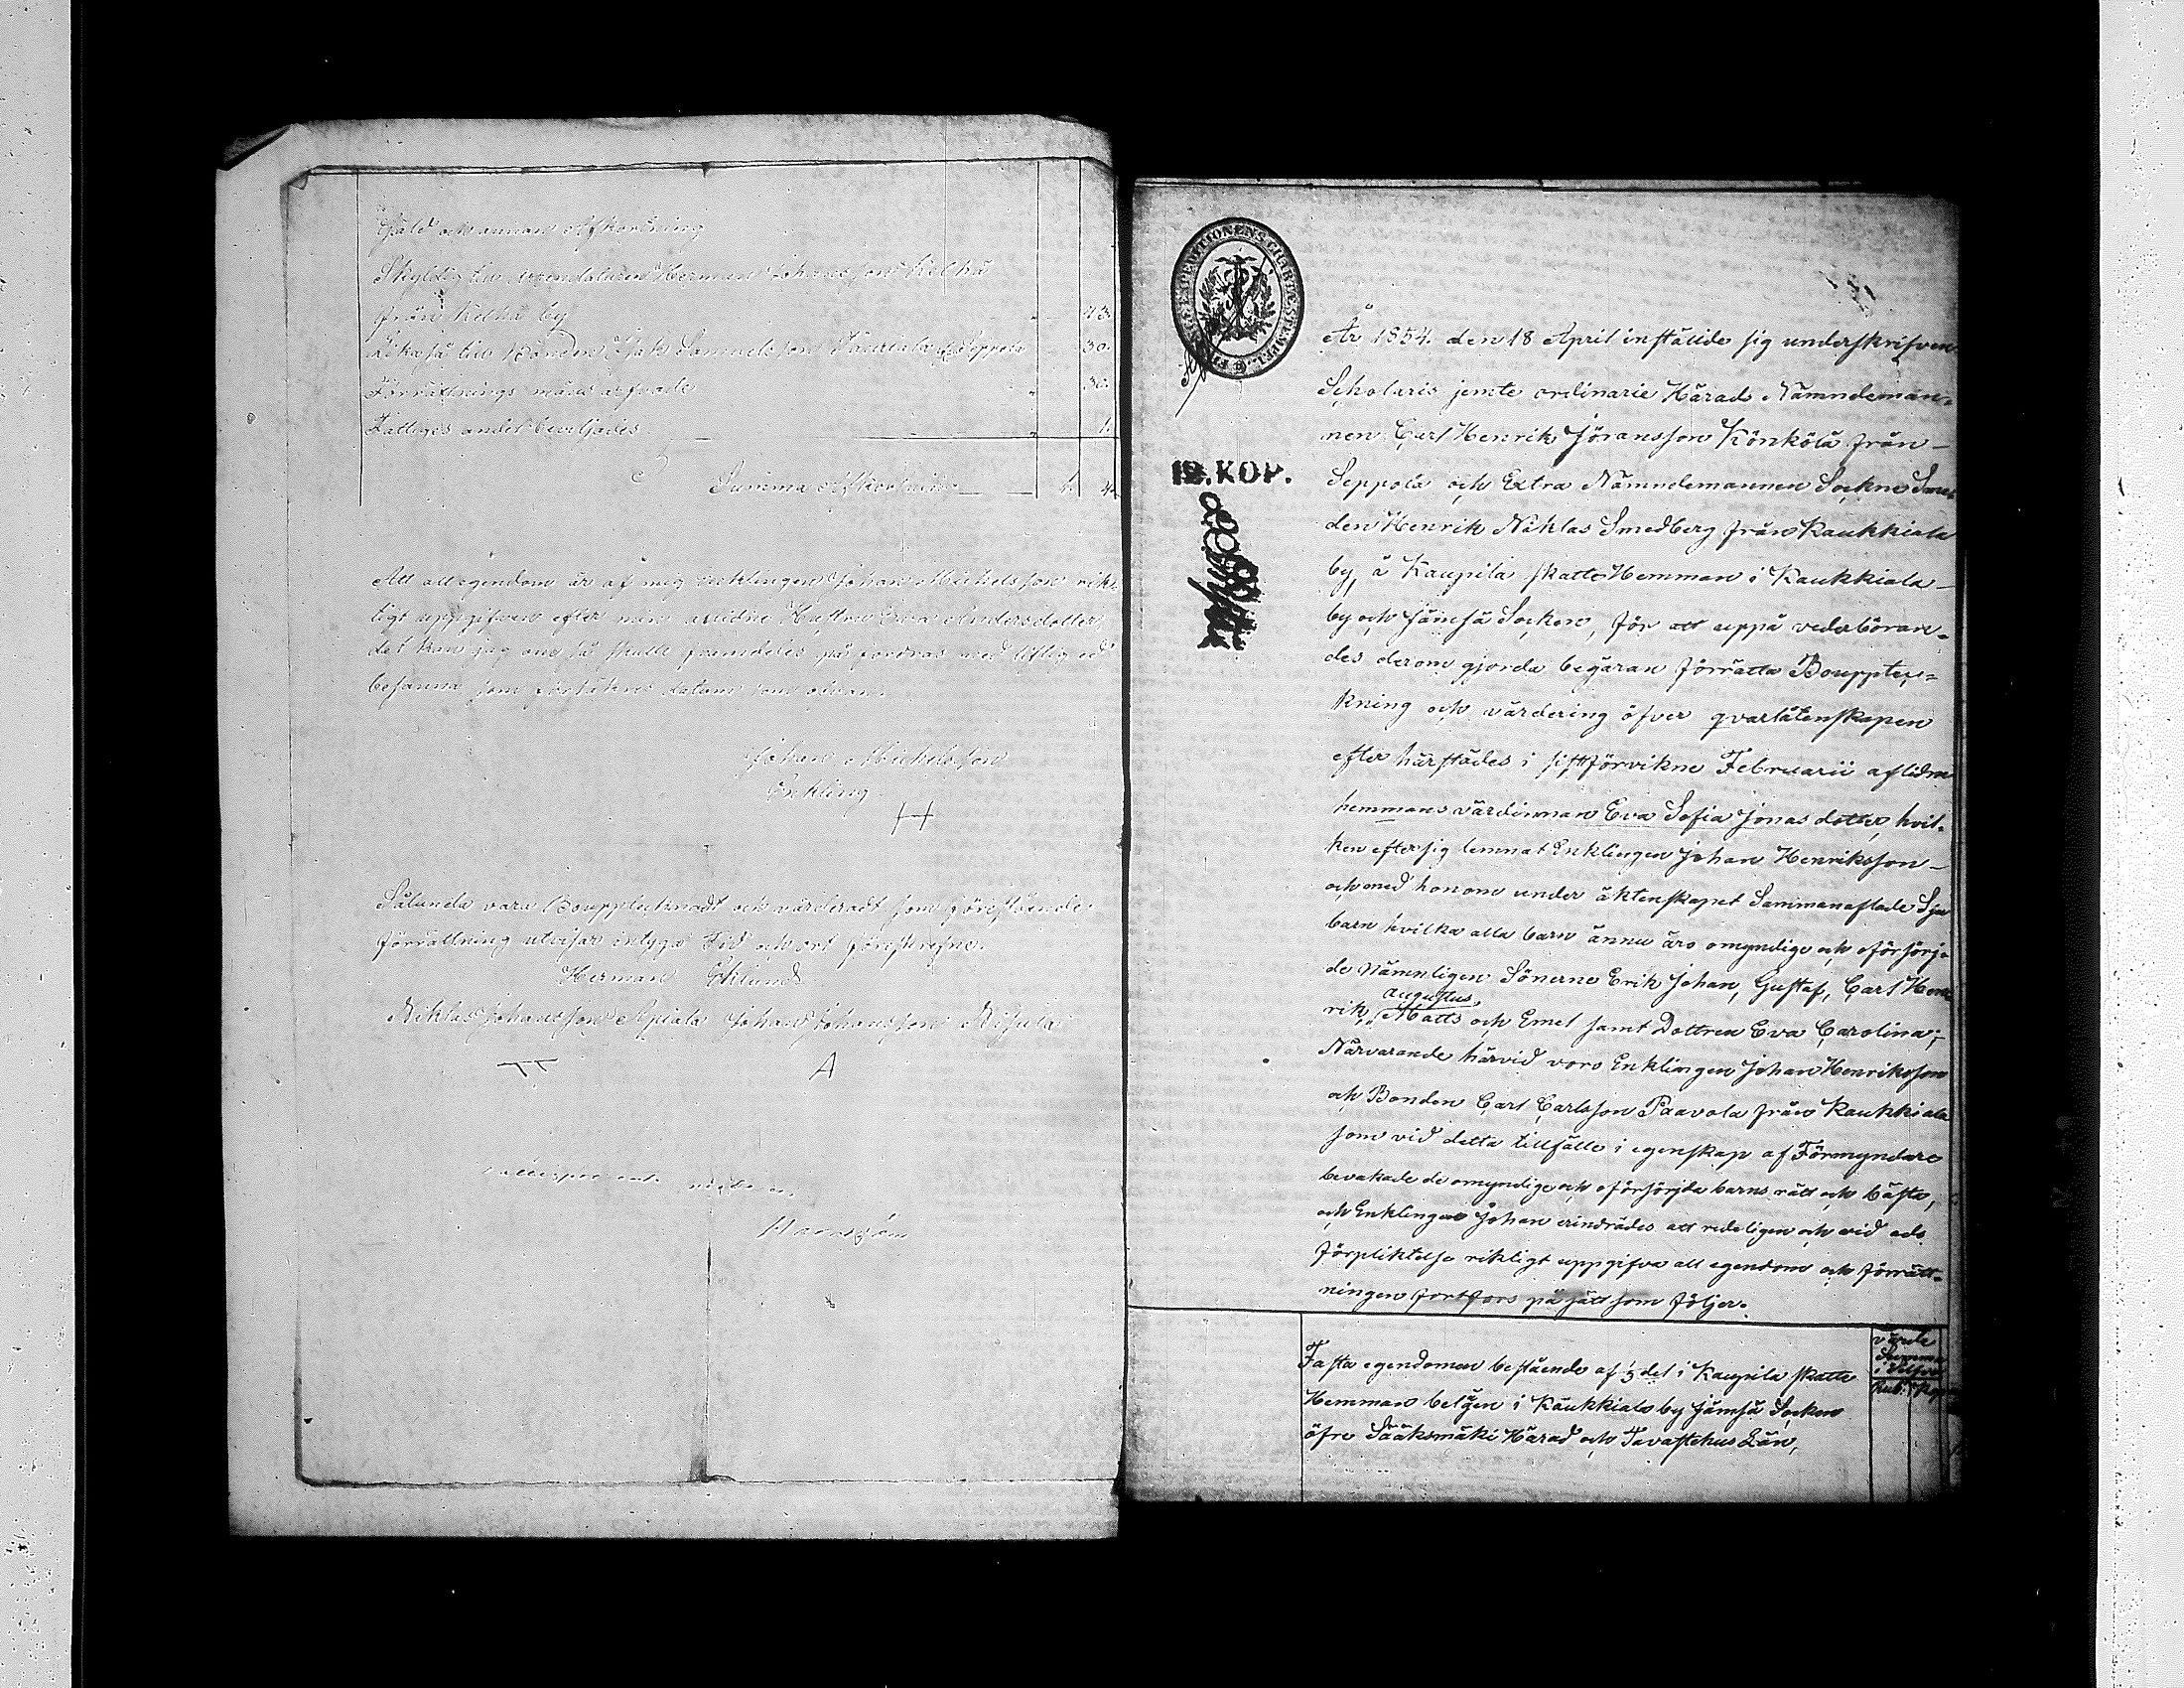 Gäld och annan Afkortning
Skyldig till Arrendatoren Herman Johansson Kelhä
från Kelhä by
Likaså till Bonden Isak Samuelsson Tauriala Seppola 30.
Förrättnings mäns arfvode 30.
Fattiges andel beviljades 1.
Summa Afkortning
Att all egendom är af mig Enklingen Johan Michelsson rik-
tigt uppgifven efter min aflidne Hustru Eva Andersdotter
det kan jag om så skulle framdeles på fordras med liflig ed
besanna som försäkras datum som ofvan.
Johan Michelsson
Enkling
Sålunda vara Bouppteknadt och värderadt som förestående
förrättning utvisar intyga Tid och ort föreskrefne.
Herman Eklund
Niklas Johansson Apiala Johan Johansson Nisula
A
EXPEDITIONENS CHARTÆ STEMPEL
År 1854. den 18 April instälde sig underskrifven
Scholaris jemte ordinarie Härads Nämndemän-
nen Carl Henrik Jöransson Könkölä från
Seppola och Extra Nämndemannen Sockne Sme-
den Henrik Niklas Smedberg från Kaukkiala
by, å Kaupila skatte Hemman i Kaukkiala
by och Jämsä Socken, för att uppå vederböran-
des derom gjorda begäran förrätta Bouppte-
kning och värdering öfver qvarlåtenskapen
efter härstädes i sistförvikne Februarii aflidne
hemmans värdinnan Eva Sofia Jonas dotter, hvil-
ken efter sig lemnat Enklingen Johan Henriksson
och med honom under äktenskapet Sammanaflade Sju
barn hvilka alla barn ännu äro omyndige och oförsörj-
de Nämnligen Sönerne Erik Johan, Gustaf, Carl Hen-
augustus,
rik, Matts och Emel samt Dottren Eva Carolina;
Närvarande härvid voro Enklingen Johan Henriksson
och Bonden Carl Carlsson Paavola från Kaukkiala
som vid detta tillfälle i egenskap af Förmyndare
bevakade de omyndige och oförsörjda barns rätt och bästa,
och Enklingen Johan erindrades att redeligen och vid eds
förpliktelse riktigt uppgifva all egendom och förrätt-
ningen fortfors på sätt som följer.
12. KOP.
värde
Summa
i Silfver
Rub. Kop.
Fasta egendomen bestående af 1/3 del i Kaupila skatte
Hemman belägen i Kaukkiala by Jämsä Socken
öfre Sääksmäki Härad och Tavastehus Län,